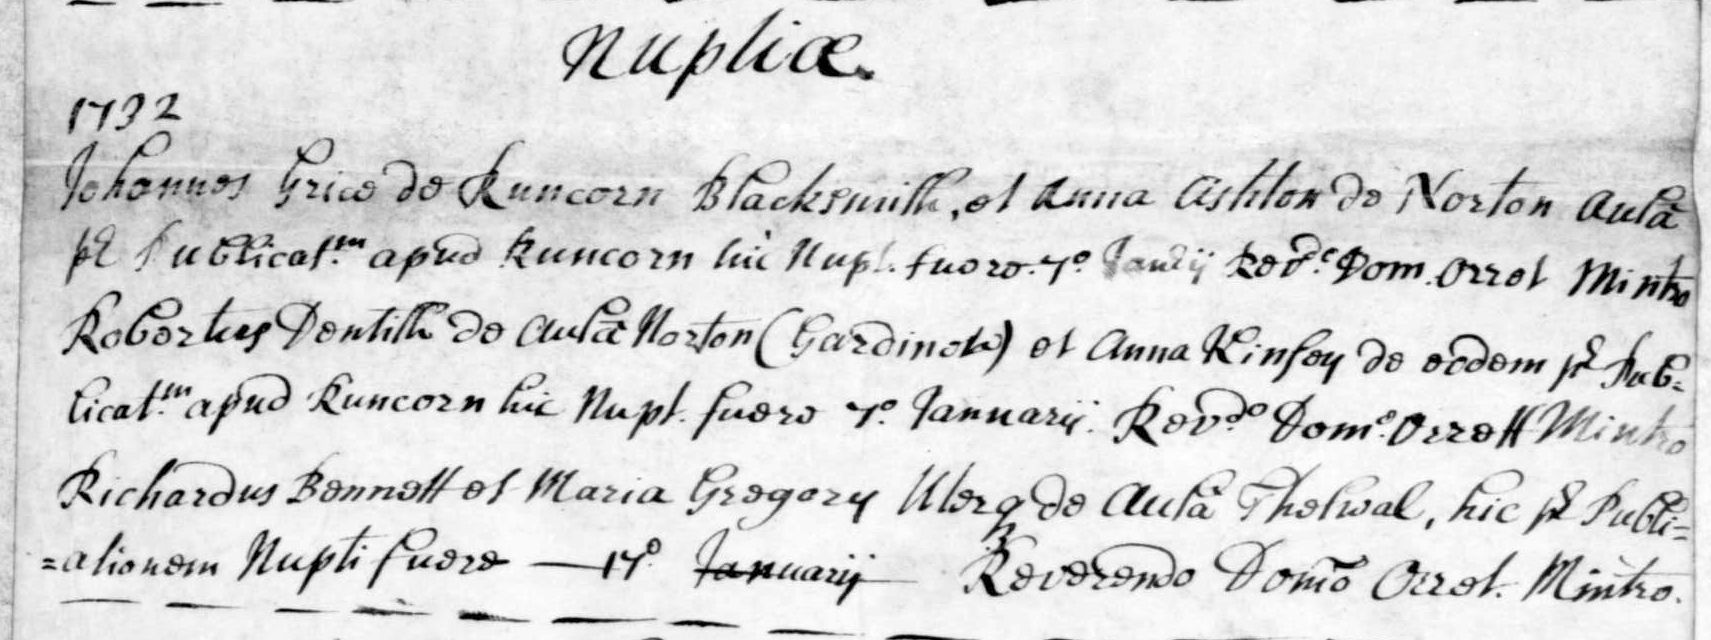 Nuptiæ.
1732
Johannes Grice de Runcorn Blacksmith, et Anna Ashton de Norton Aulâ
pr Publicat.m apud Runcorn hic Nupt. fuere 7o Revd.o Dom. Orret Mintro
Robertus Dentith de Aulâ Norton (Gardiner) et Anna Kinsey de eodem pr Pub=
licat.m apud Runcorn hic Nupt. fuere 7o. Januarij. Revd.o Domo. Orrett Mintro
Richardus Bennett et Maria Gregory de Aulâ Thelwal, hic pr Publi=
=ationem Nupti fuere — 17o Januarij Reverendo Domo Orret. Mintro.